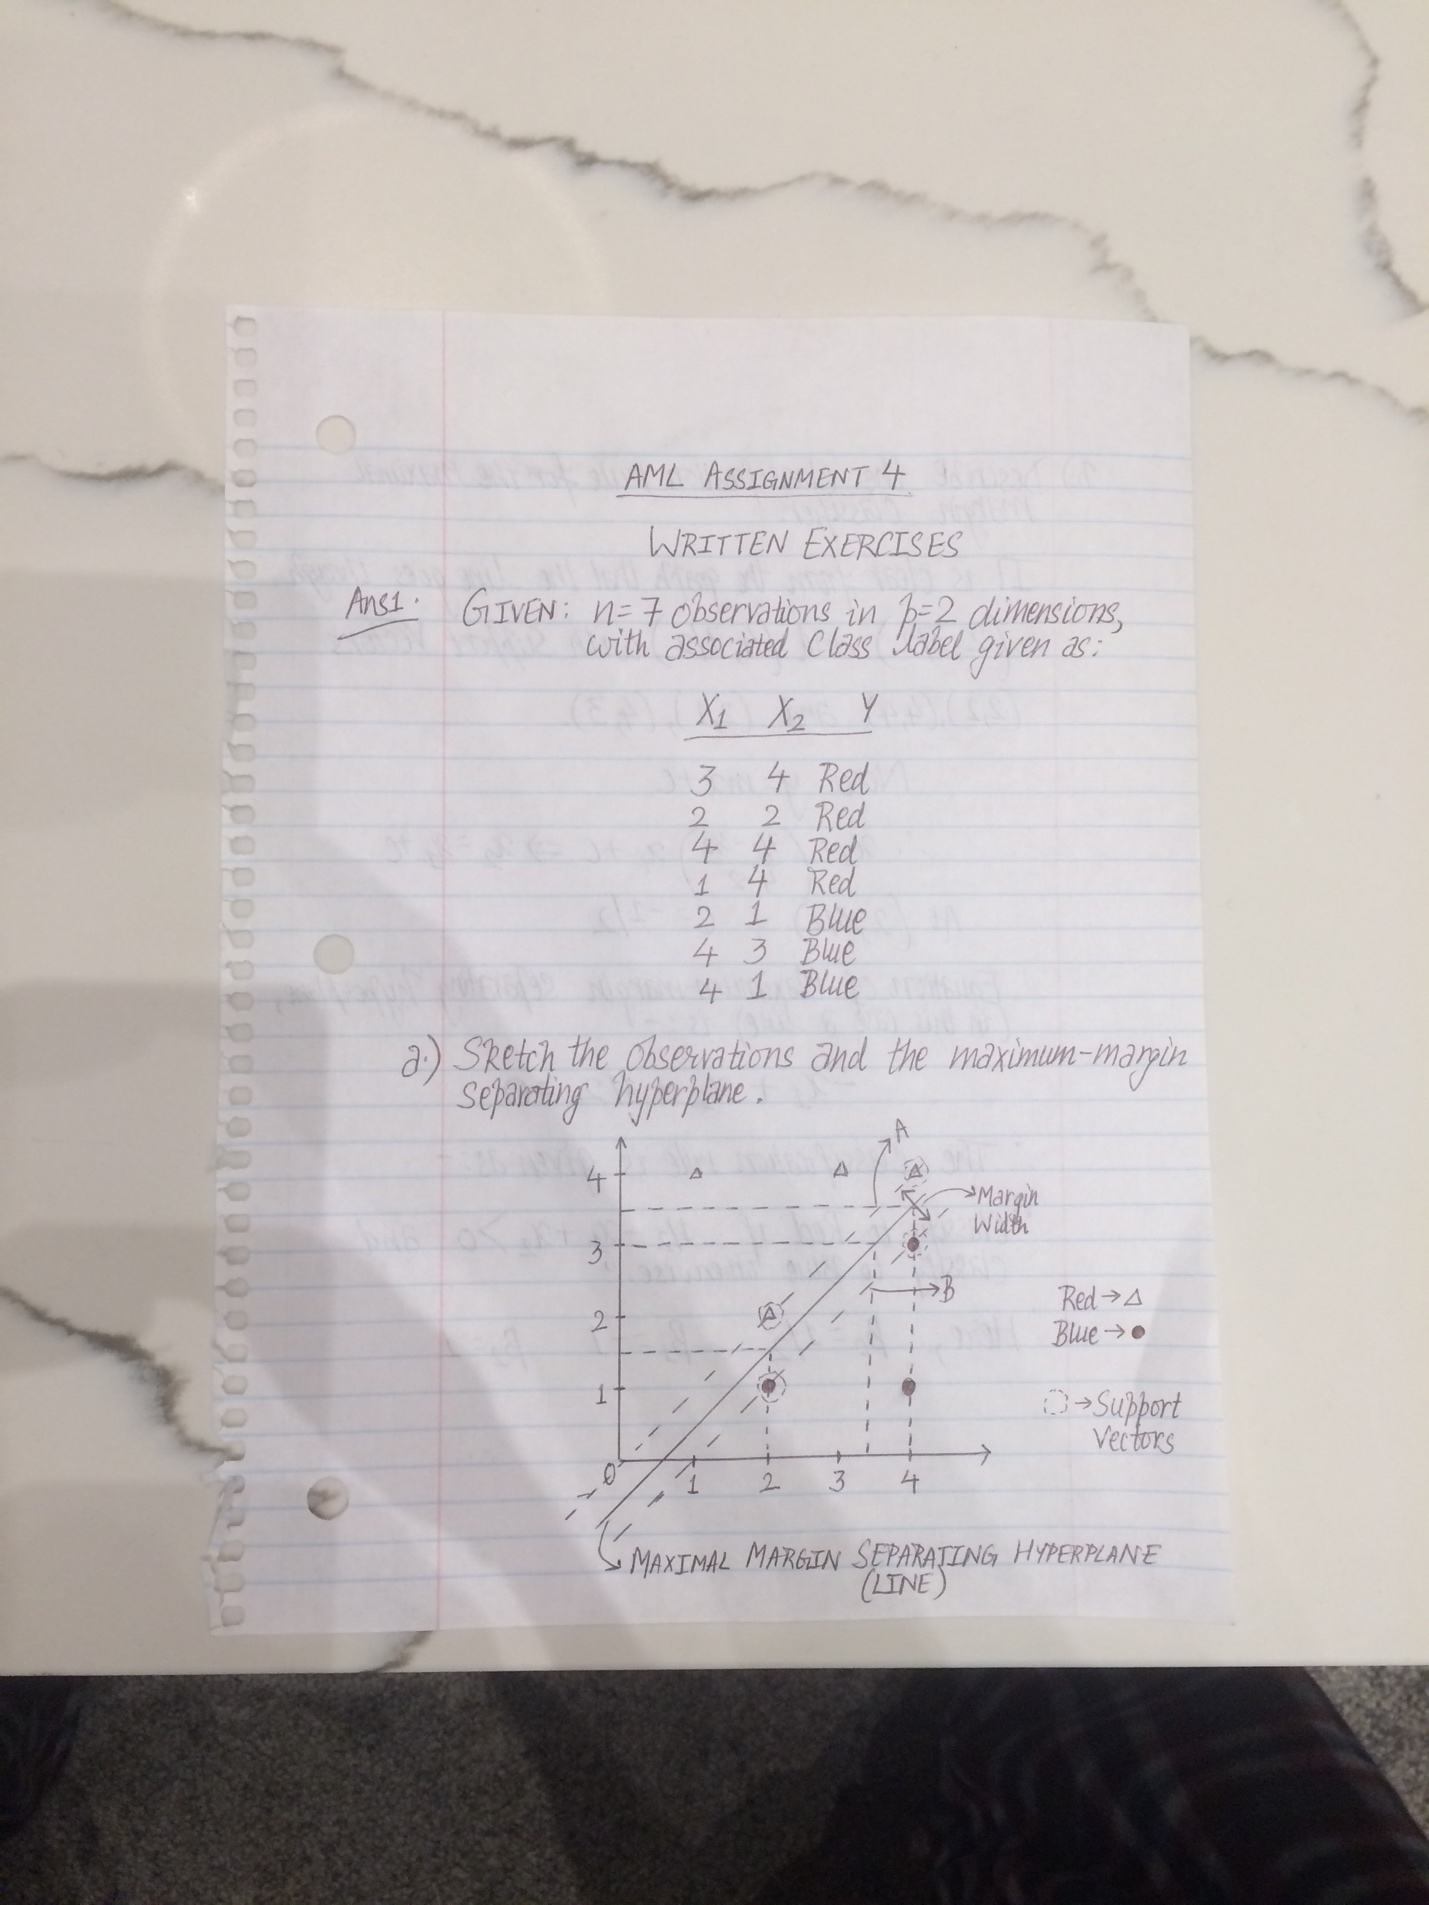 AML ASSIGNMENT 4
WRITTEN EXERCISES
Ans1. GIVEN: n=7 observations in p=2 dimensions,
with associated Class label given as:
X1 X2 Y
3 4 Red
2 2 Red
4 4 Red
1 4 Red
2 1 Blue
4 3 Blue
4 1 Blue
a.) Sketch the observations and the maximum-margin
separating hyperplane.
A
4
Margin
Width
3
B
Red → △
2
Blue → ●
1
→ Support
Vectors
0 1 2 3 4
MAXIMAL MARGIN SEPARATING HYPERPLANE
(LINE)